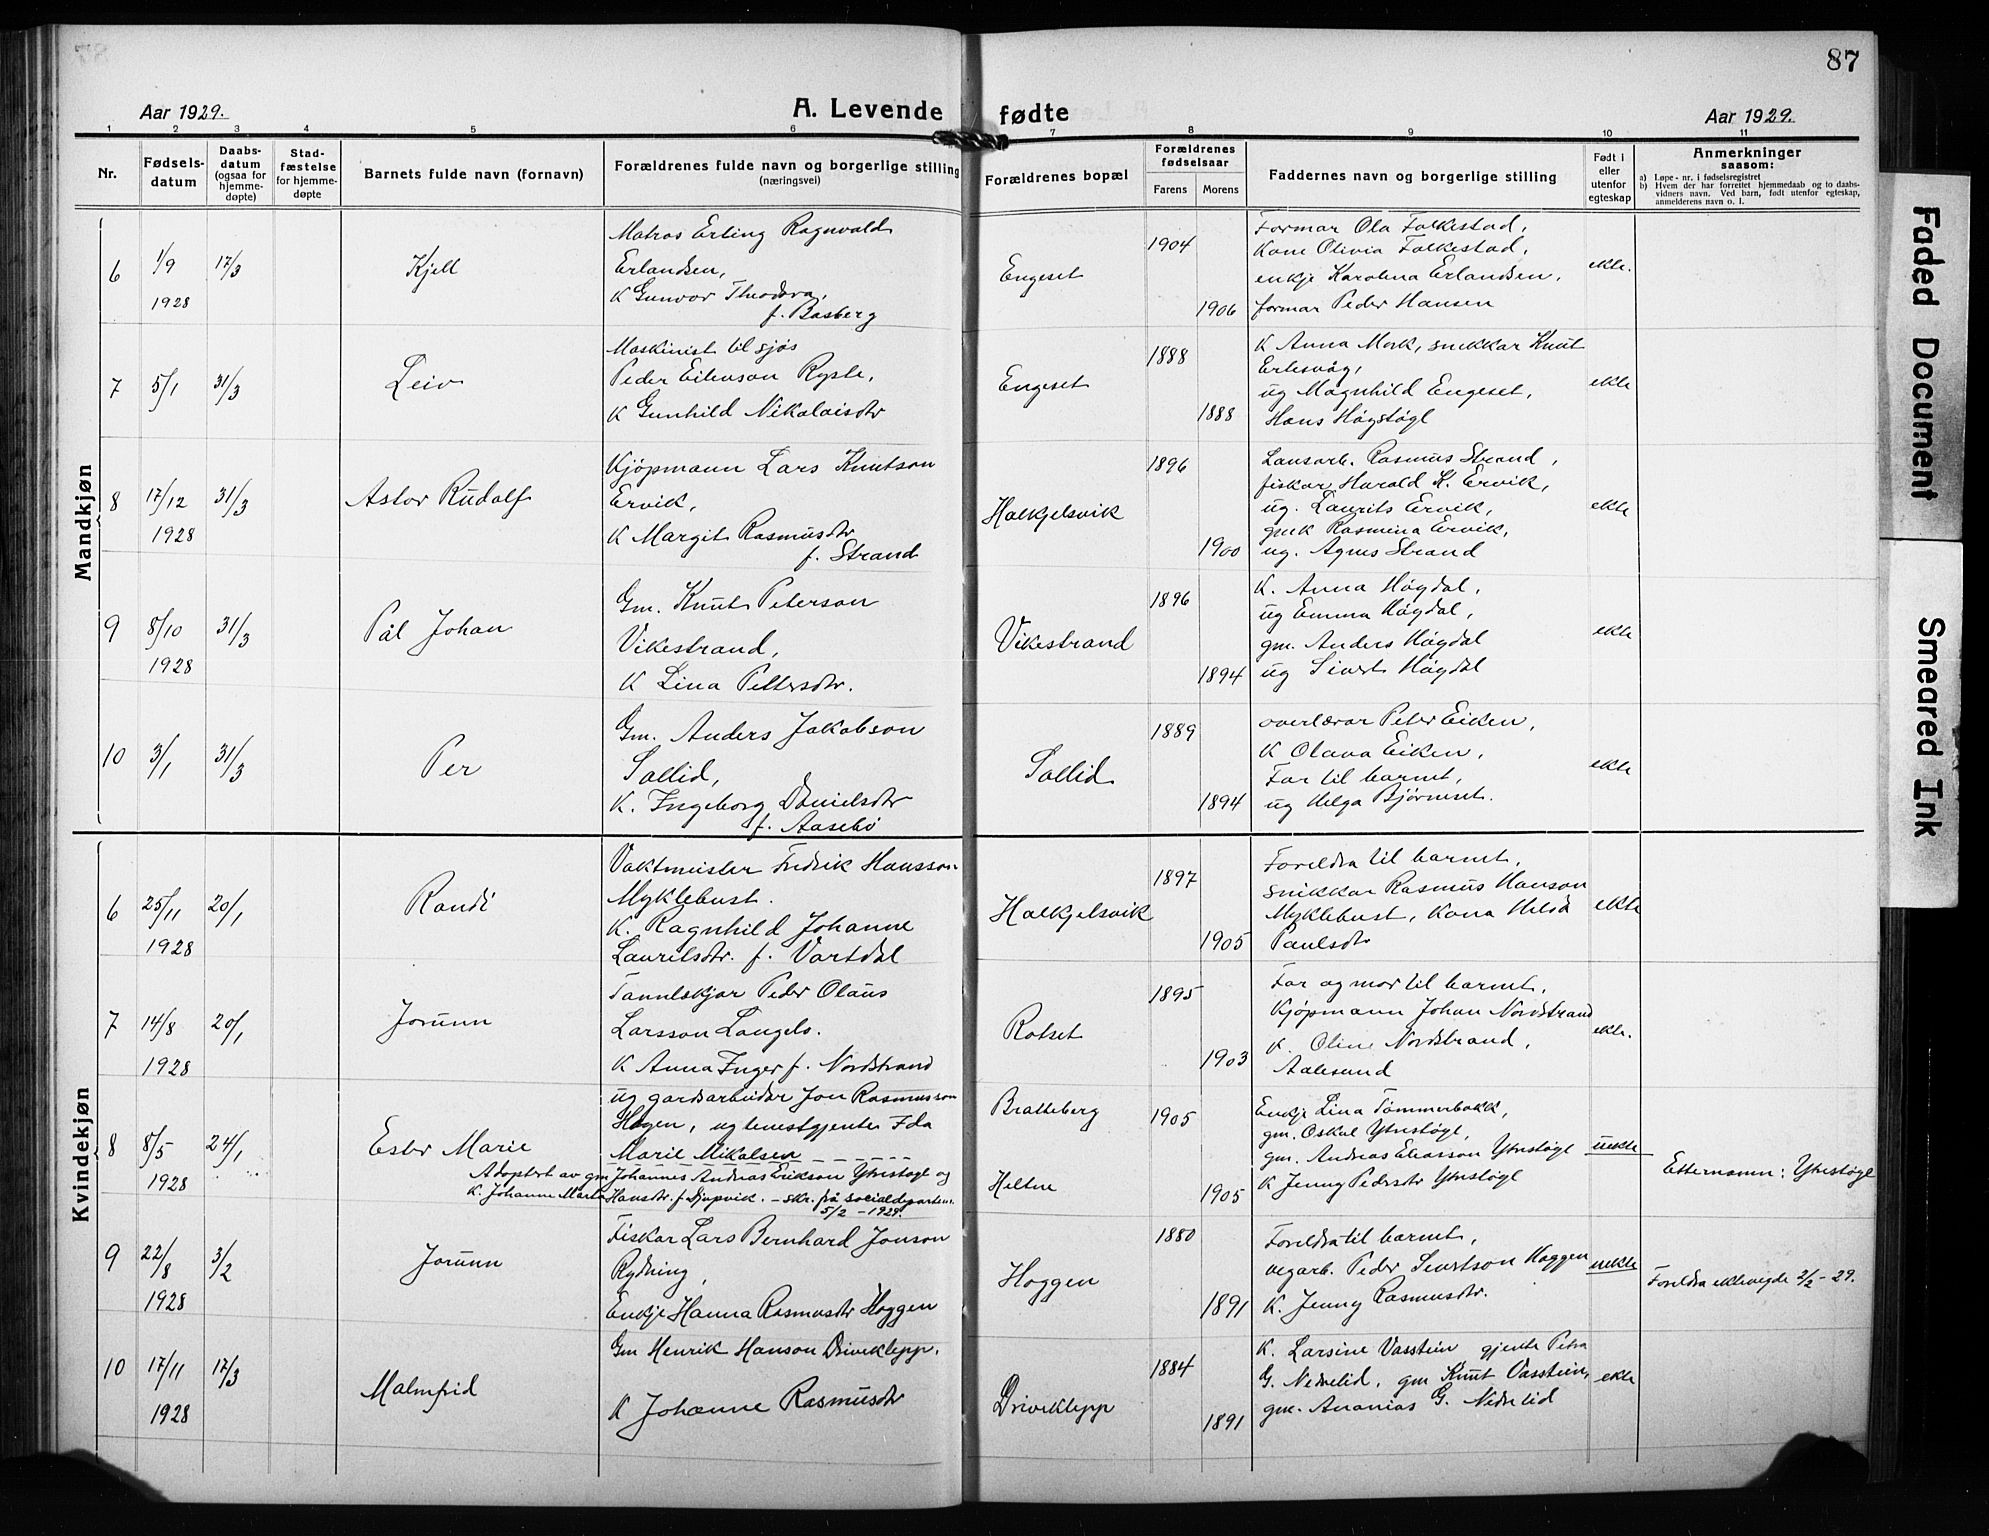 87
Aar 1929.
A. Levende fødte
Aar 1929.
1 2 3 4 5 6 7 8 9 10 11
Nr.
Fødsels-
datum
Daabs-
datum
(ogsaa for
hjemme-
døpte)
Stad-
fæstelse
for hjemme-
døpte
Barnets fulde navn (fornavn)
Forældrenes fulde navn og borgerlige stilling
(næringsvei)
Forældrenes bopæl
Forældrenes
fødselsaar
Farens
Morens
Faddernes navn og borgerlige stilling
Født i
eller
utenfor
egteskap
Anmerkninger
saasom:
a) Løpe - nr. i fødselsregistret
b) Hvem der har forrettet hjemmedaab og to daabs-
vidners navn. Ved barn, født utenfor egteskap,
anmelderens navn o. l.
Mandkjøn
6
1/9
1928
17/3
Kjell
Matros Erling Ragnvald
Erlandsen,
K Gunvor Theodora,
f. Basberg
Engeset
1904
1906
Formar Ola Folkestad,
Kone Olivia Folkestad,
enkje Karolina Erlandsen,
formar Peder Hansen
ekte.
7
5/1
31/3
Leiv
Maskinist til sjøs
Peder Eilevson Ryste,
K Gunhild Nikolaisdtr
Engeset
1888
1888
K Anna Mork, snikkar Knut
Erlesvåg,
ug Magnhild Engeset,
Hans Høgstøgl
ekte
8
17/12
1928
31/3
Astor Rudolf
Kjøpmann Lars Knutson
Ervik,
K Margit Rasmusdtr
f. Strand
Halkjelsvik
1896
1900
Lausarb. Rasmus Strand,
fiskar Harald K. Ervik,
ug. Laurits Ervik,
gmk Rasmina Ervik,
ug. Agnes Strand
ekte
9
8/10
1928
31/3
Pål Johan
Gm. Knut Peterson
Vikestrand,
K Lina Pettersdtr.
Vikestrand
1896
1894
K. Anna Høgdal,
ug Emma Høgdal,
gm. Anders Høgdal
ug Sivert Høgdal
ekte
10
3/1
31/3
Per
Gm. Anders Jakobson
Sollid,
K. Ingeborg Danielsdtr
f. Aasebø
Sollid
1889
1894
overlærar Peter Eiken,
K Olava Eiken,
Far til barnet,
ug Helga Bjørneset.
ekte
Kvindekjøn
6
25/11
1928
20/1
Randi
Vaktmeister Fredrik Hansson
Myklebust.
K. Ragnhild Johanne
Lauritsdtr. f. Vartdal
Halkjelsvik
1897
1905
Foreldra til barnet,
snikkar Rasmus Hanson
Myklebust, Kona
Paulsdtr
ekte
7
14/8
1928
20/1
Jorunn
Tannlækjar Peder Olaus
Larsson Langelo.
K Anna Inger f. Nordstrand
Rotset
1895
1903
Far og mor til barnet,
Kjøpmann Johan Nordstrand
K. Oline Nordstrand,
Aalesund
ekte.
8
8/5
1928
24/1
Ester Marie
ug gardsarbeidar Jon Rasmusson
Hagen, ug tenestgjente Ida
Marie Mikalsen
Adoptert av gm Johannes Andreas Erikson Ytrestøgl og
K. Johanne Marta Hansdtr. f. Djupvik. - skr. frå socialdepartem.
5/2 - 1929.
Bratteberg
Heltne
1905
1905
Enkje Lina Tømmerbakk,
gm. Oskal Ytrestøgl,
gm. Andreas Eliasson Ytrestøgl
K Jenny Pedersdtr Ytrestøgl
uekte
Etternamn: Ytrestøgl
9
22/8
1928
3/2
Jorunn
Fiskar Lars Bernhard Jonson
Rydning,
Enkje Hanna Rasmusdtr Hoggen
Hoggen
1880
1891
Foreldra til barnet,
vegarb. Peder Sivertson Hoggen
K. Jenny Rasmusdtr.
uekte
Foreldra ektevigde 2/2 - 29.
10
17/11
1928
17/3
Malmfrid
Gm Henrik Hanson Driveklepp,
K Johanne Rasmusdtr
Driveklepp
1884
1891
K. Larsine Vasstein gjente Petra
G. Nedrelid, gm Knut Vasstein,
gm. Ananias G. Nedrelid
ekte
Faded Document
Smeared Ink